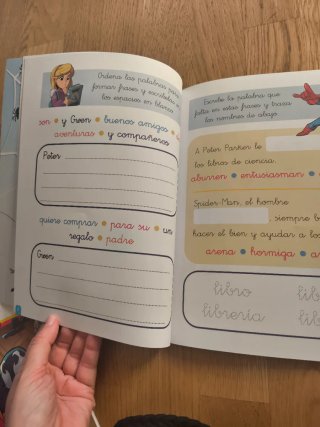 Ordena las palabras para
formar frases y escríbelas en
los espacios en blanco.
son • y Gwen • buenos amigos •
aventuras • y compañeros
Peter
quiere comprar • para su • un
regalo • padre
Gwen
Escribe la palabra que
falta en estas frases y traza
los nombres de abajo.
A Peter Parker le
los libros de ciencia.
aburren • entusiasman •
Spider-Man, el hombre
, siempre
hacer el bien y ayudar a los
arena • hormiga •
libro
librería